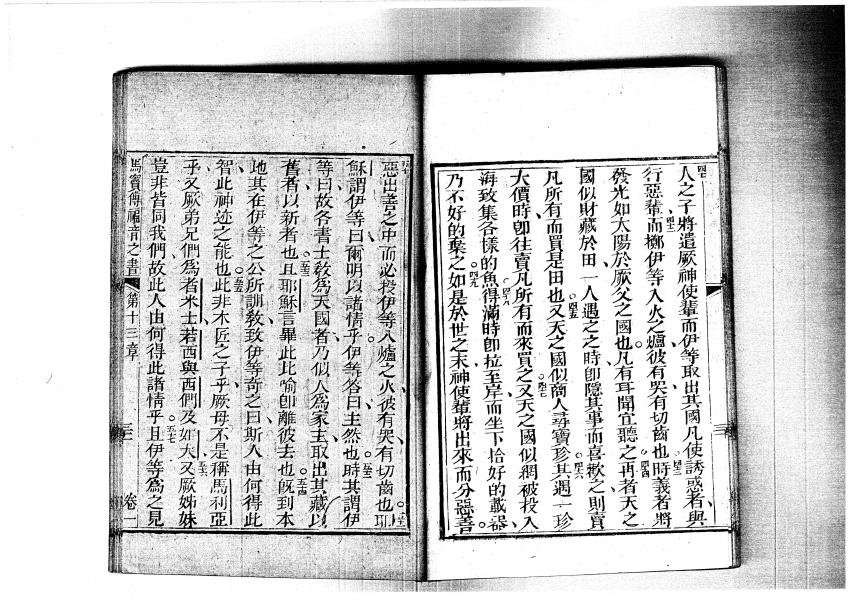 人之子將遣厥神使輩而伊等取出其國凡使誘惑者與
行惡輩而擲伊等入火之爐彼有哭有切齒也時義者將
發光如太陽於厥父之國也凡有耳聞宜聽之再者天之
國似財藏於田一人遇之之時卽隱其事而喜歡之則賣
凡所有而買是田也又天之國似商人尋寶珍其遇一珍
大價時卽往賣凡所有而來買之又天之國似網被投入
海致集各樣的魚得滿時卽拉至岸而坐下拾好的載器
乃不好的棄之如是於世之末神使輩將出來而分惡善
惡出善之中而必投伊等入爐之火彼有哭有切齒也耶
穌謂伊等曰爾明以諸情乎伊等答曰主然也時其謂伊
等曰故各書士教爲天國者乃似人爲家主取出其藏以
舊者以新者也且耶穌言畢此比喻卽離彼去也旣到本
地其在伊等之公所訓教致伊等奇之曰斯人由何得此
智此神迹之能也此非木匠之子乎厥母不是稱馬利亞
乎又厥弟兄們爲者米士若西與西們及如大又厥姊妹
豈非皆同我們故此人由何得此諸情乎且伊等爲之見
馬竇傳福音之書 第十三章 三 卷一